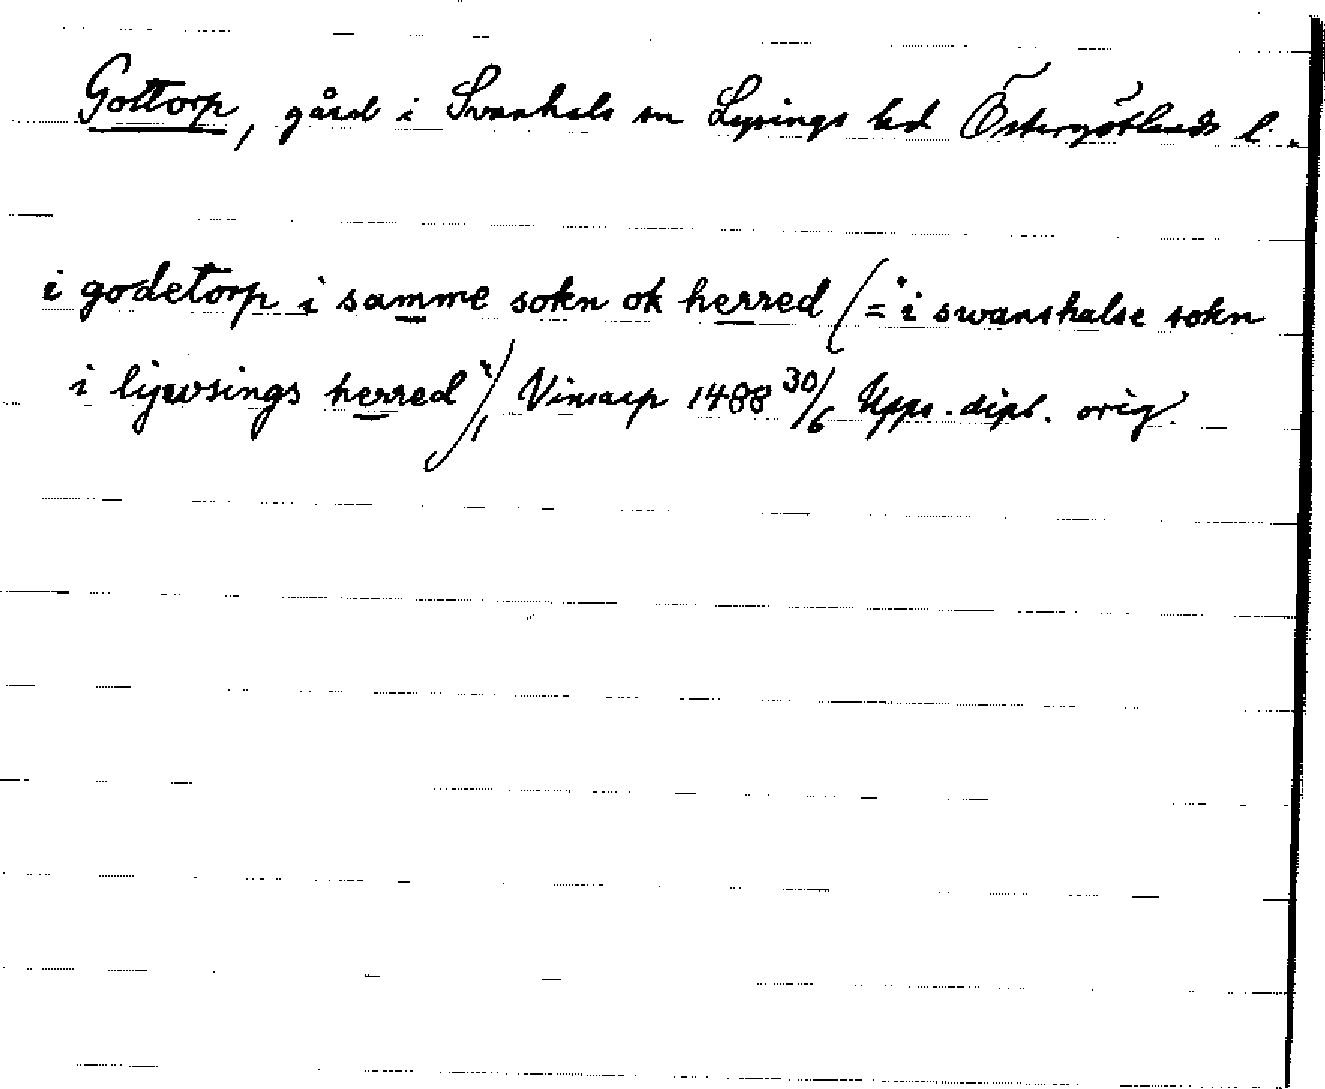 Gottorp, gård i Svanhals sn Lysings hd Östergötlands l.
i godetorp i samme sokn ok herred (= "i swanshalse sokn
i lijwsings herred") 1488 30/6 Upps. dipl. orig.